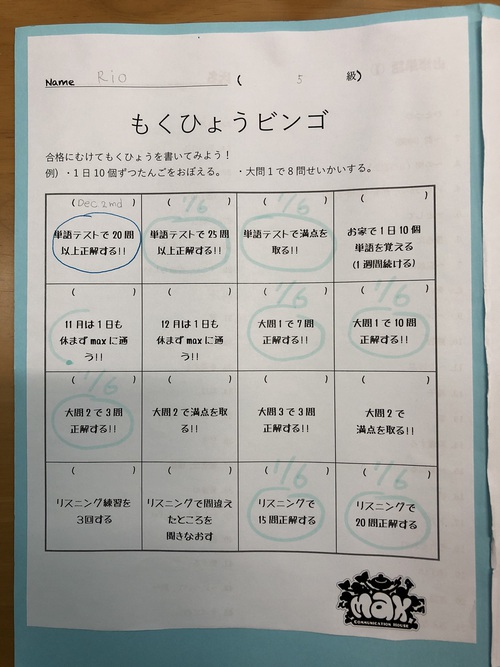 Name Rio ( 5 級)
もくひょうビンゴ
合格にむけてもくひょうを書いてみよう！
例）・1日10個ずつたんごをおぼえる。 ・大問1で8問せいかいする。
(Dec 2nd)
単語テストで20問
以上正解する!!
( 1/6 )
単語テストで25問
以上正解する!!
( 1/6 )
単語テストで満点を
取る!!
( )
お家で1日10個
単語を覚える
(1週間続ける)
( )
11月は1日も
休まずmaxに通
う!!
( )
12月は1日も
休まずmaxに通
う!!
( 1/6 )
大問1で7問
正解する!!
( 1/6 )
大問1で10問
正解する!!
( 1/6 )
大問2で3問
正解する!!
( )
大問2で満点を取
る!!
( )
大問3で3問
正解する!!
( )
大問2で
満点を取る!!
( )
リスニング練習を
3回する
( )
リスニングで間違え
たところを
聞きなおす
( 1/6 )
リスニングで
15問正解する
( 1/6 )
リスニングで
20問正解する
max
COMMUNICATION HOUSE